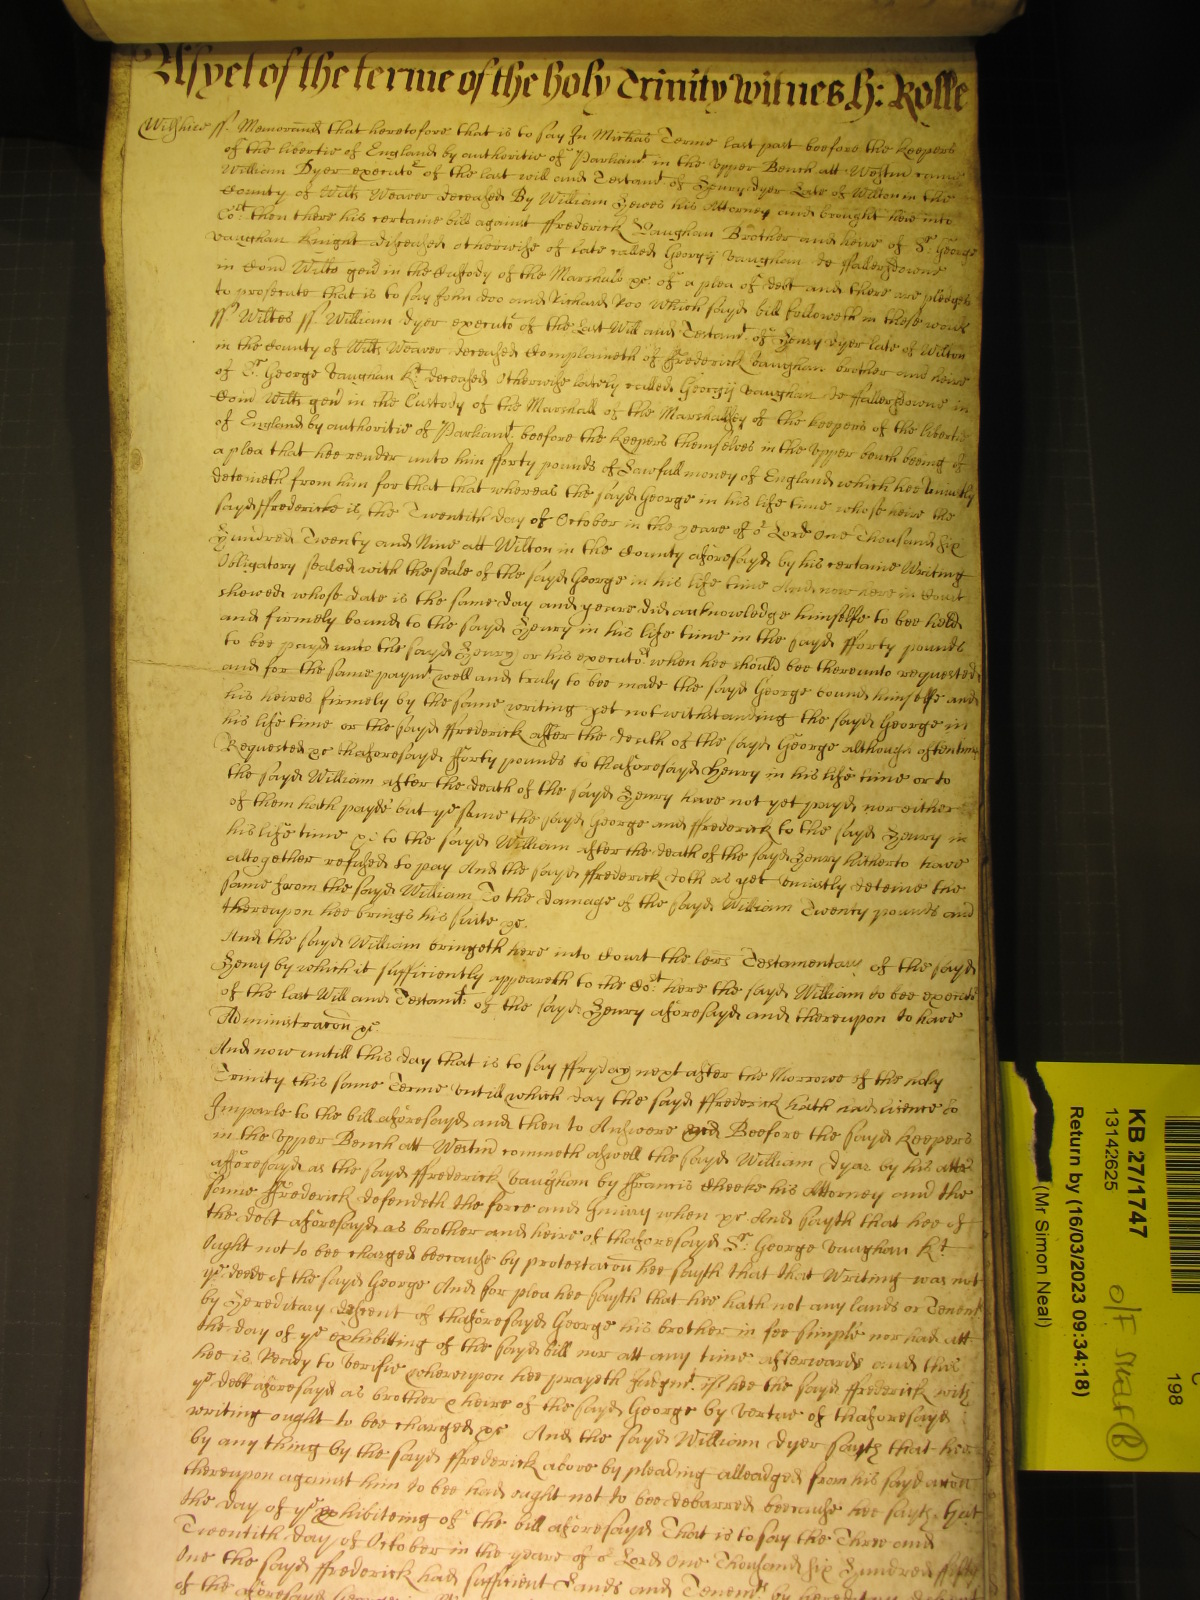 As yet of the terme of the holy Trinity Witnes H: Rolle
Wiltshire ss. Memorand that heretofore that is to say In Michas Terme last past beefore the keepers
of the libertie of England by authoritie of Parliamt in the upper Bench att Westm came
William Dyer executor of the last will and Testamt of Henry dyer Late of Wilton in the
County of Wilts Weaver deceased By William Hewes his Attorney and brought here into
Cort then there his certaine bill against ffrederick Vaughan Brother and heire of Sr George
Vaughan Knight deceased otherwise of late called Georgij Vaughan de ffallersdowne
in Com Wilts gen in the Custody of the Marshals &c of a plea of debt and there are pledges
to prosecute that is to say John Doo and Richard Roo Which sayd bill followeth in these words
ss Wiltes ss William dyer executor of the Last Will and Testamt of Henry dyer late of Wilton
in the County of Wilts Weaver deceased Complaineth of ffrederick Vaughan brother and heire
of Sr George Vaughan Kt deceased Otherwise lately called Georgij Vaughan de ffallersdowne in
Com Wilts gen in the Custody of the Marshall of the Marshalsey of the keepers of the libertie
of England by authoritie of Parliamt beefore the keepers themselves in the Upper bench beeing of
a plea that hee render unto him fforty pounds of Lawfull money of England which hee Uniustly
deteineth from him for that that whereas the sayd George in his life time whose heire the
sayd ffrederick is, the Twentith day of October in the yeare of or Lord One Thousand Six
Hundred Twenty and Nine att Wilton in the County aforesayd by his certaine Writing
Obligatory sealed with the seale of the sayd George in his life time And now here in Court
shewed whose date is the same day and yeare did acknowledge himselfe to bee held
and firmely bound to the sayd Henry in his life time in the sayd fforty pounds
to bee payd unto the sayd Henry or his executors when hee should bee thereunto requested
and for the same paymt well and truly to bee made the sayd George bound himselfe and
his heires firmely by the same writing yet notwithstanding the sayd George in
his life time or the sayd ffrederick after the death of the sayd George although oftentimes
Requested &c thaforesayd fforty pounds to thaforesayd Henry in his life time or to
the sayd William after the death of the sayd Henry have not yet payd nor either
of them hath payde but ye same the sayd George and ffrederick to the sayd Henry in
his life time &c to the sayd William after the death of the sayd Henry hitherto have
altogether refused to pay And the sayd ffrederick doth as yet uniustly deteine the
same from the sayd William To the damage of the sayd William Twenty pounds and
thereupon hee brings his suite &c
And the sayd William bringeth here into Court the lers Testamentary of the sayd
Henry by which it sufficiently appeareth to the Cort here the sayd William to bee executor
of the last Will and Testamt of the sayd Henry aforesayd and thereupon to have
Administracon &c
And now untill this day that is to say ffryday next after the Morrowe of the holy
Trinity this same Terme Untill which day the sayd ffrederick hath had licence to
Imparle to the bill aforesayd and then to Answere Beefore the sayd keepers
in the Upper Bench att Westm commeth aswell the sayd William dyar by his attor
afforesayd as the sayd ffrederick Vaugham by ffrancis Cheeke his Attorney and the
same ffrederick defendeth the force and Iniury when &c And sayth that hee of
the debt aforesayd as brother and heire of thaforesayd Sr George Vaughan Kt
ought not to bee charged beecause by protestacon hee sayth that that Writing was not
ye deede of the sayd George And for plea hee sayth that hee hath not any lands or Tenemts
by Hereditary descent of thaforesayd George his brother in fee simple nor had att
the day of ye exhibitting of the sayd bill nor att any time afterwards and this
hee is Ready to verifie whereupon hee prayeth Judgmt if hee the sayd ffrederick with
ye debt aforesayd as brother & heire of the sayd George by vertue of thaforesayd
writing ought to bee charged &c And the sayd William dyer sayth that hee
by any thing by the sayd ffrederick above by pleading alleadged from his sayd accon
thereupon against him to bee had ought not to bee debarred beecause hee sayth that
the day of ye exhibiteing of the bill aforesayd That is to say the Three and
Twentith day of October in the yeare of or Lord One Thousand Six Hundred ffifty
One the sayd ffrederick had sufficient Lands and Tenemts by hereditary descent
of the aforesayd George
KB 27/1747
13142625
Return by (16/03/2023 09:34:18)
(Mr Simon Neal)
O/F
198